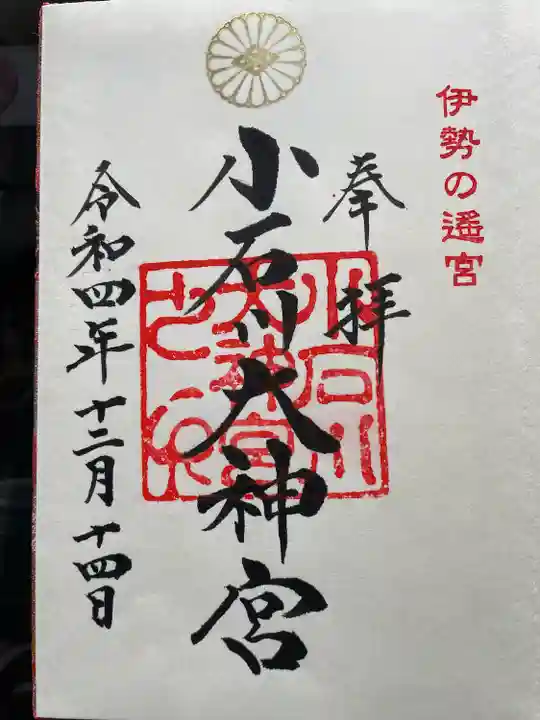 伊勢の遥宮
奉拝
小石川大神宮
小石川
大神宮
之印
令和四年十二月十四日